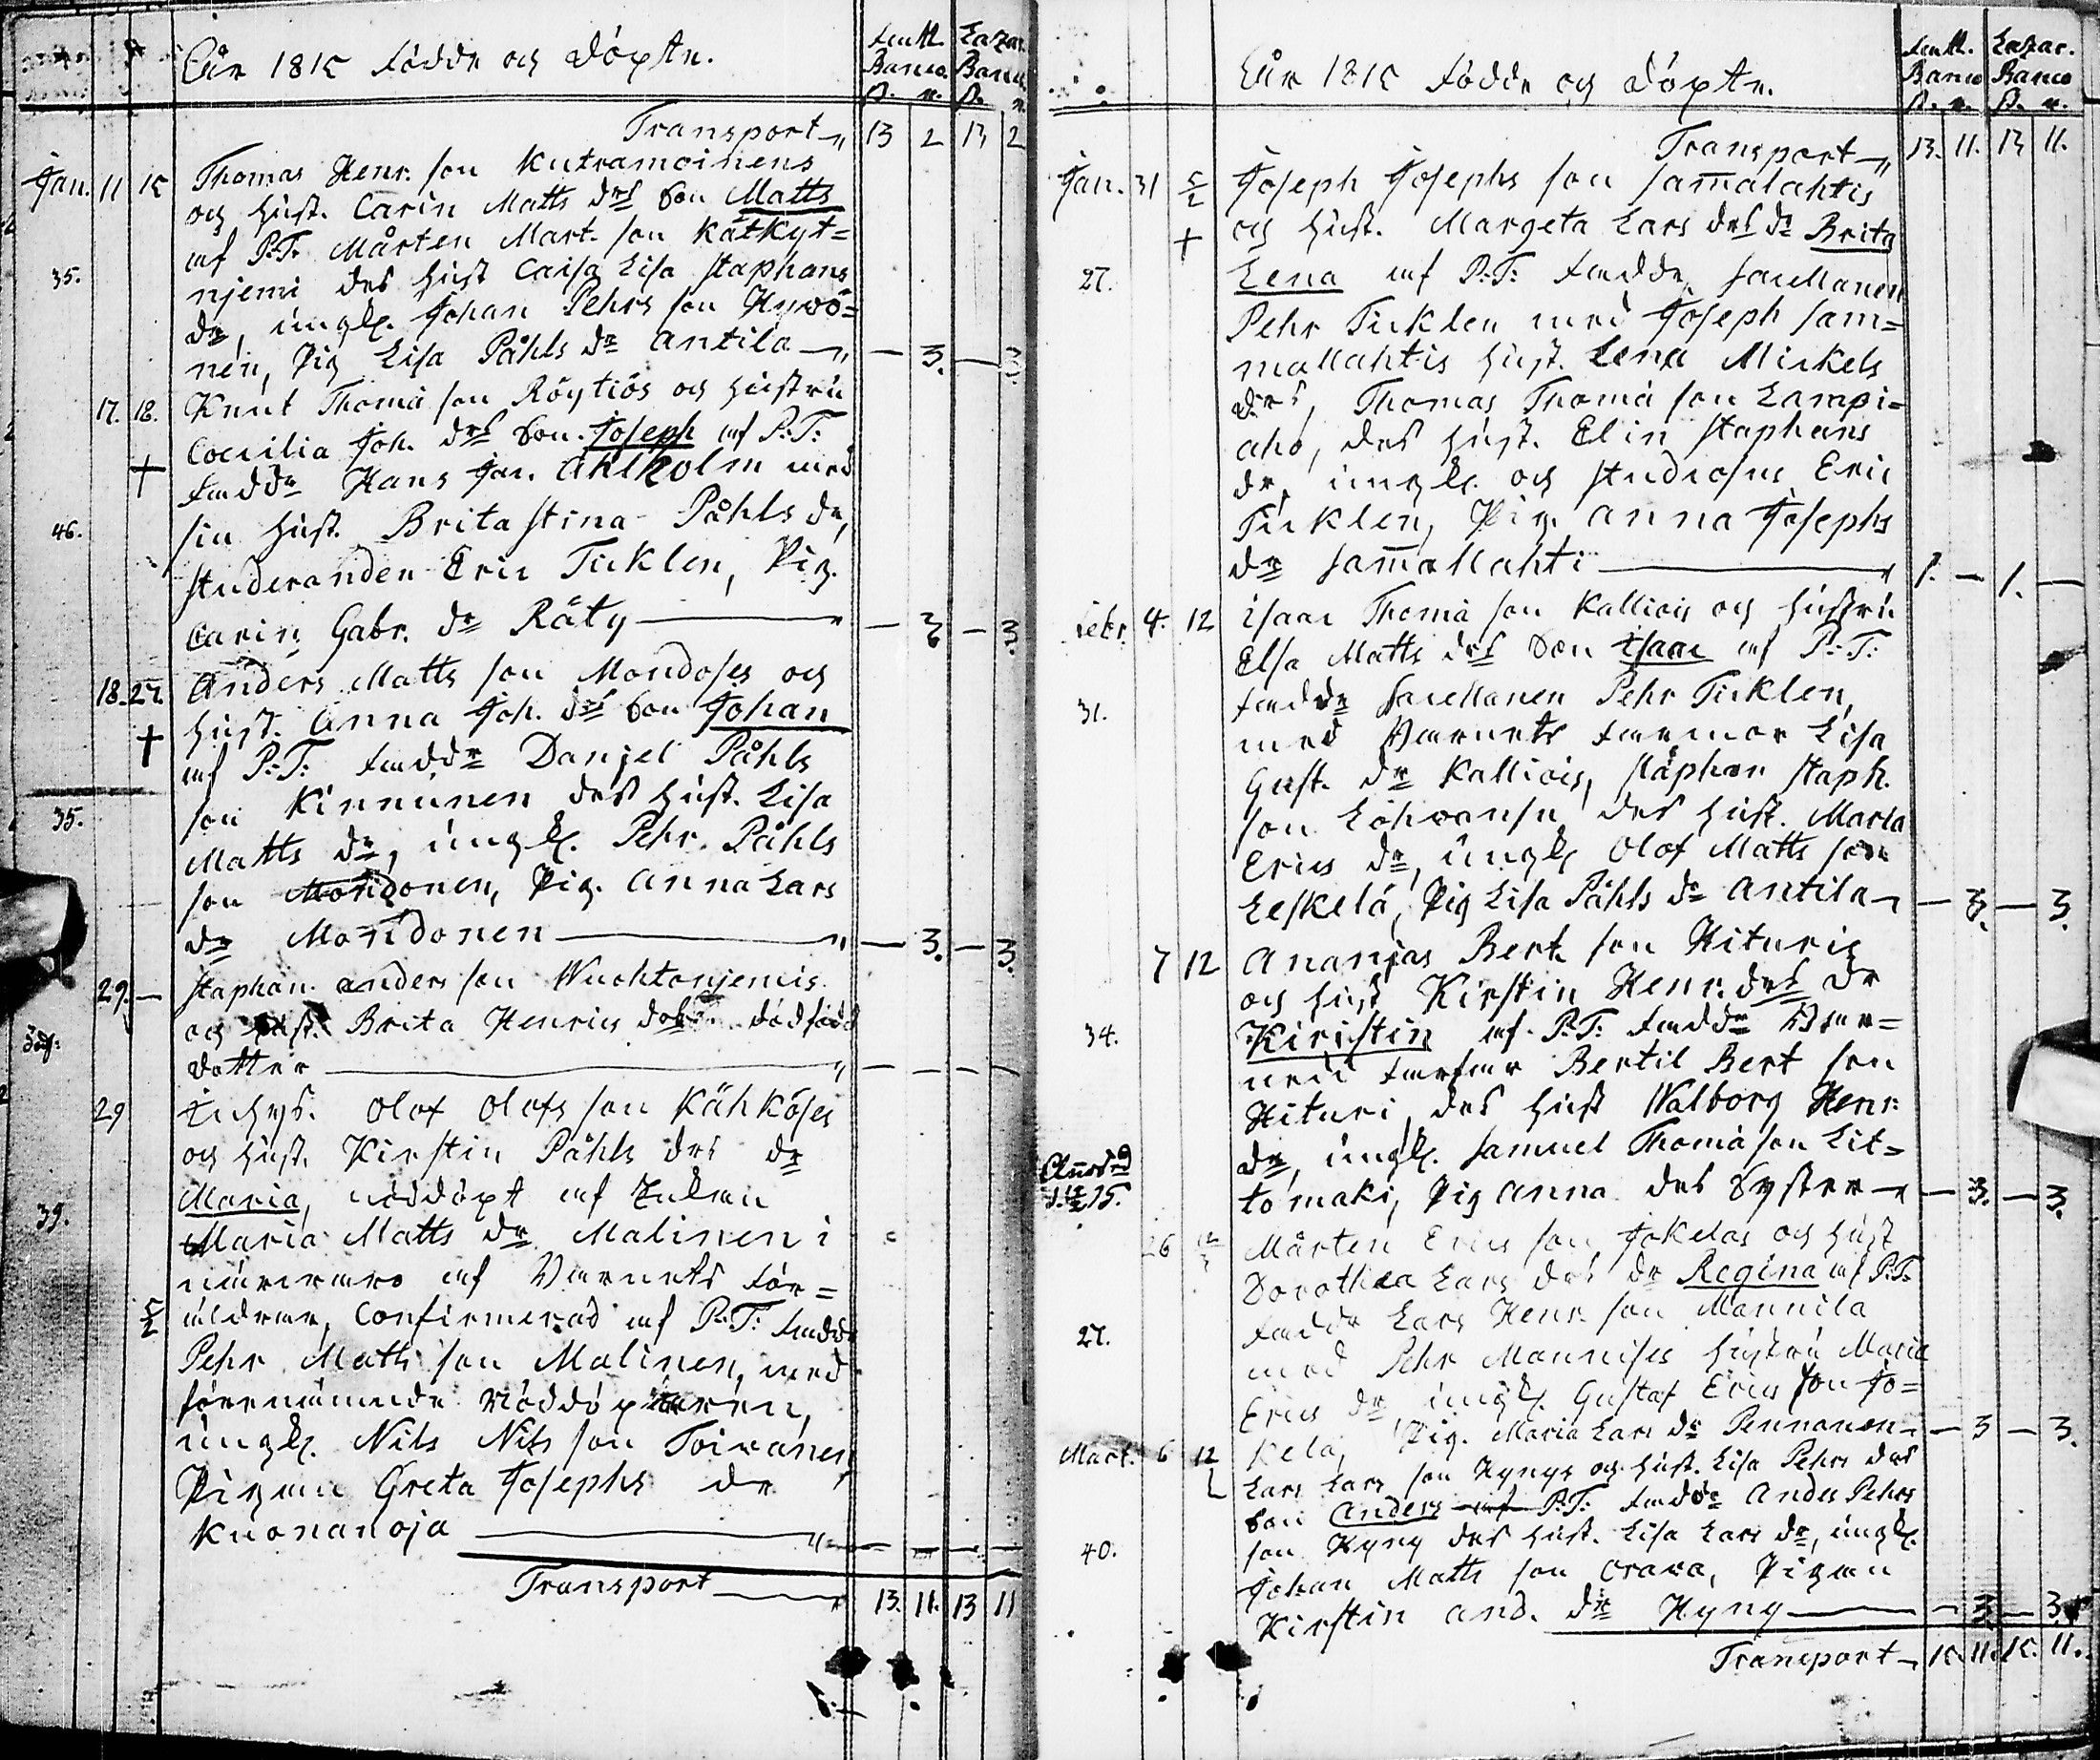 År 1815 födde og döpte.
Fatt. Banco. ß. r.
Lazar. Banco ß. r.
Transport 13 2 13 2
Jan. 11 15 Thomas Henr. son Kutramoinens
og hust. Carin Matts drs Son Matts
af P.T. Mårten Mart. son Kätkyt=
35. njemi des hust Caisa Lisa Staphans
dr, ungk. Johan Pehrs son Hyvö=
nen, Pig Lisa Påhls dr Antila — 3. — 3.
17. 18. Knut Thomæ son Röytiös og hustru
Cæcilia Joh. drs Son Joseph af P:T:
+ faddr Hans Jac. Ahlholm med
46. sin hust. Brita Stina Påhls dr,
Studeranden Eric Ticklen, Pig.
Carin Gabr. dr Räty — 3 — 3.
18. 27. Anders Matts son Mondoses og
hust. Anna Joh. drs Son Johan
+ af P:T: faddr Danjel Påhls
35. son Kinnunen des hust. Lisa
Matts dr, ungk. Pehr Påhls
son Mondonen, Pig. Anna Lars
dr Mondonen — 3. — 3.
29. — Staphan Anders son Wuohtonjemis
og hust. Brita Henrics drs dödfödd
dotter — — — —
29 Inhys. Olof Olofs son Kähköses
og hust. Kirstin Påhls drs dr
39. Maria, nöddöpt af Enkan
Maria Matts dr Malinen i
närvaro af Barnets för=
5/2 äldrar, Confirmerad af P:T: faddr
Pehr Matts son Malinen, med
förenämnde Nöddöperen,
ungk. Nils Nils son Toivanen
Pigan Greta Josephs dr
Kuonanoja — — — —
Transport 13. 11. 13 11
År 1815 födde og döpte.
Fatt. Banco ß. r.
Lazar. Banco ß. r.
Transport 13. 11. 13 11.
Jan. 31 5/2 Joseph Josephs son Samalahtis
+ og hust. Margeta Lars drs dr Brita
27. Lena af P:T: faddr Capellanen
Pehr Ticklen med Joseph Sam=
mallahtis hust. Lena Mickels
drs, Thomas Thomæ son Lampi=
aho, des hust. Elin Staphans
dr, ungk. og Studiosus Eric
Ticklen, Pig. Anna Josephs
dr Samallahti 1. — 1. —
Febr. 4. 12 Isaac Thomæ son Kalliois og hustru
Elsa Matts drs Son Isaac af P:T:
31. faddr Capellanen Pehr Ticklen,
med Barnets farmor Lisa
Gust. dr Kalliois, Staphan Staph.
son Löhvansu, des hust. Maria
Erics dr, ungk. Olof Matts son
Leskelä, Pig Lisa Påhls dr Antila — 3. — 3.
7 12 Ananjas Bert. son Hituris
og hust. Kirstin Henr. drs dr
34. Kiristin af P:T: faddr Bar=
nets farfar Bertil Bert son
Hituri, des hust Walborg Henr.
dr, ungk. Samuel Thomæ son Lit=
tomäki, Pig Anna des Syster — 3. — 3.
26 Mårten Erics son Jokelas og hust
Dorothea Lars drs dr Regina af P:T:
27. faddr Lars Henr. son Mannila
med Pehr Mannises hustru Maria
Erics dr, ungk. Gustaf Erics son Jo=
kela, Pig. Maria Lars dr Pennanen — 3 — 3.
Mart. 6 12 Lars Lars son Hynys og hust. Lisa Pehrs drs
Son Anders af P:T: faddr Anders Pehrs
40. son Hyny des hust. Lisa Lars dr, ungk.
Johan Matts son Orava, Pigan
Kirstin And. dr Hyny — 3. — 3.
Transport 15. 11. 15. 11.